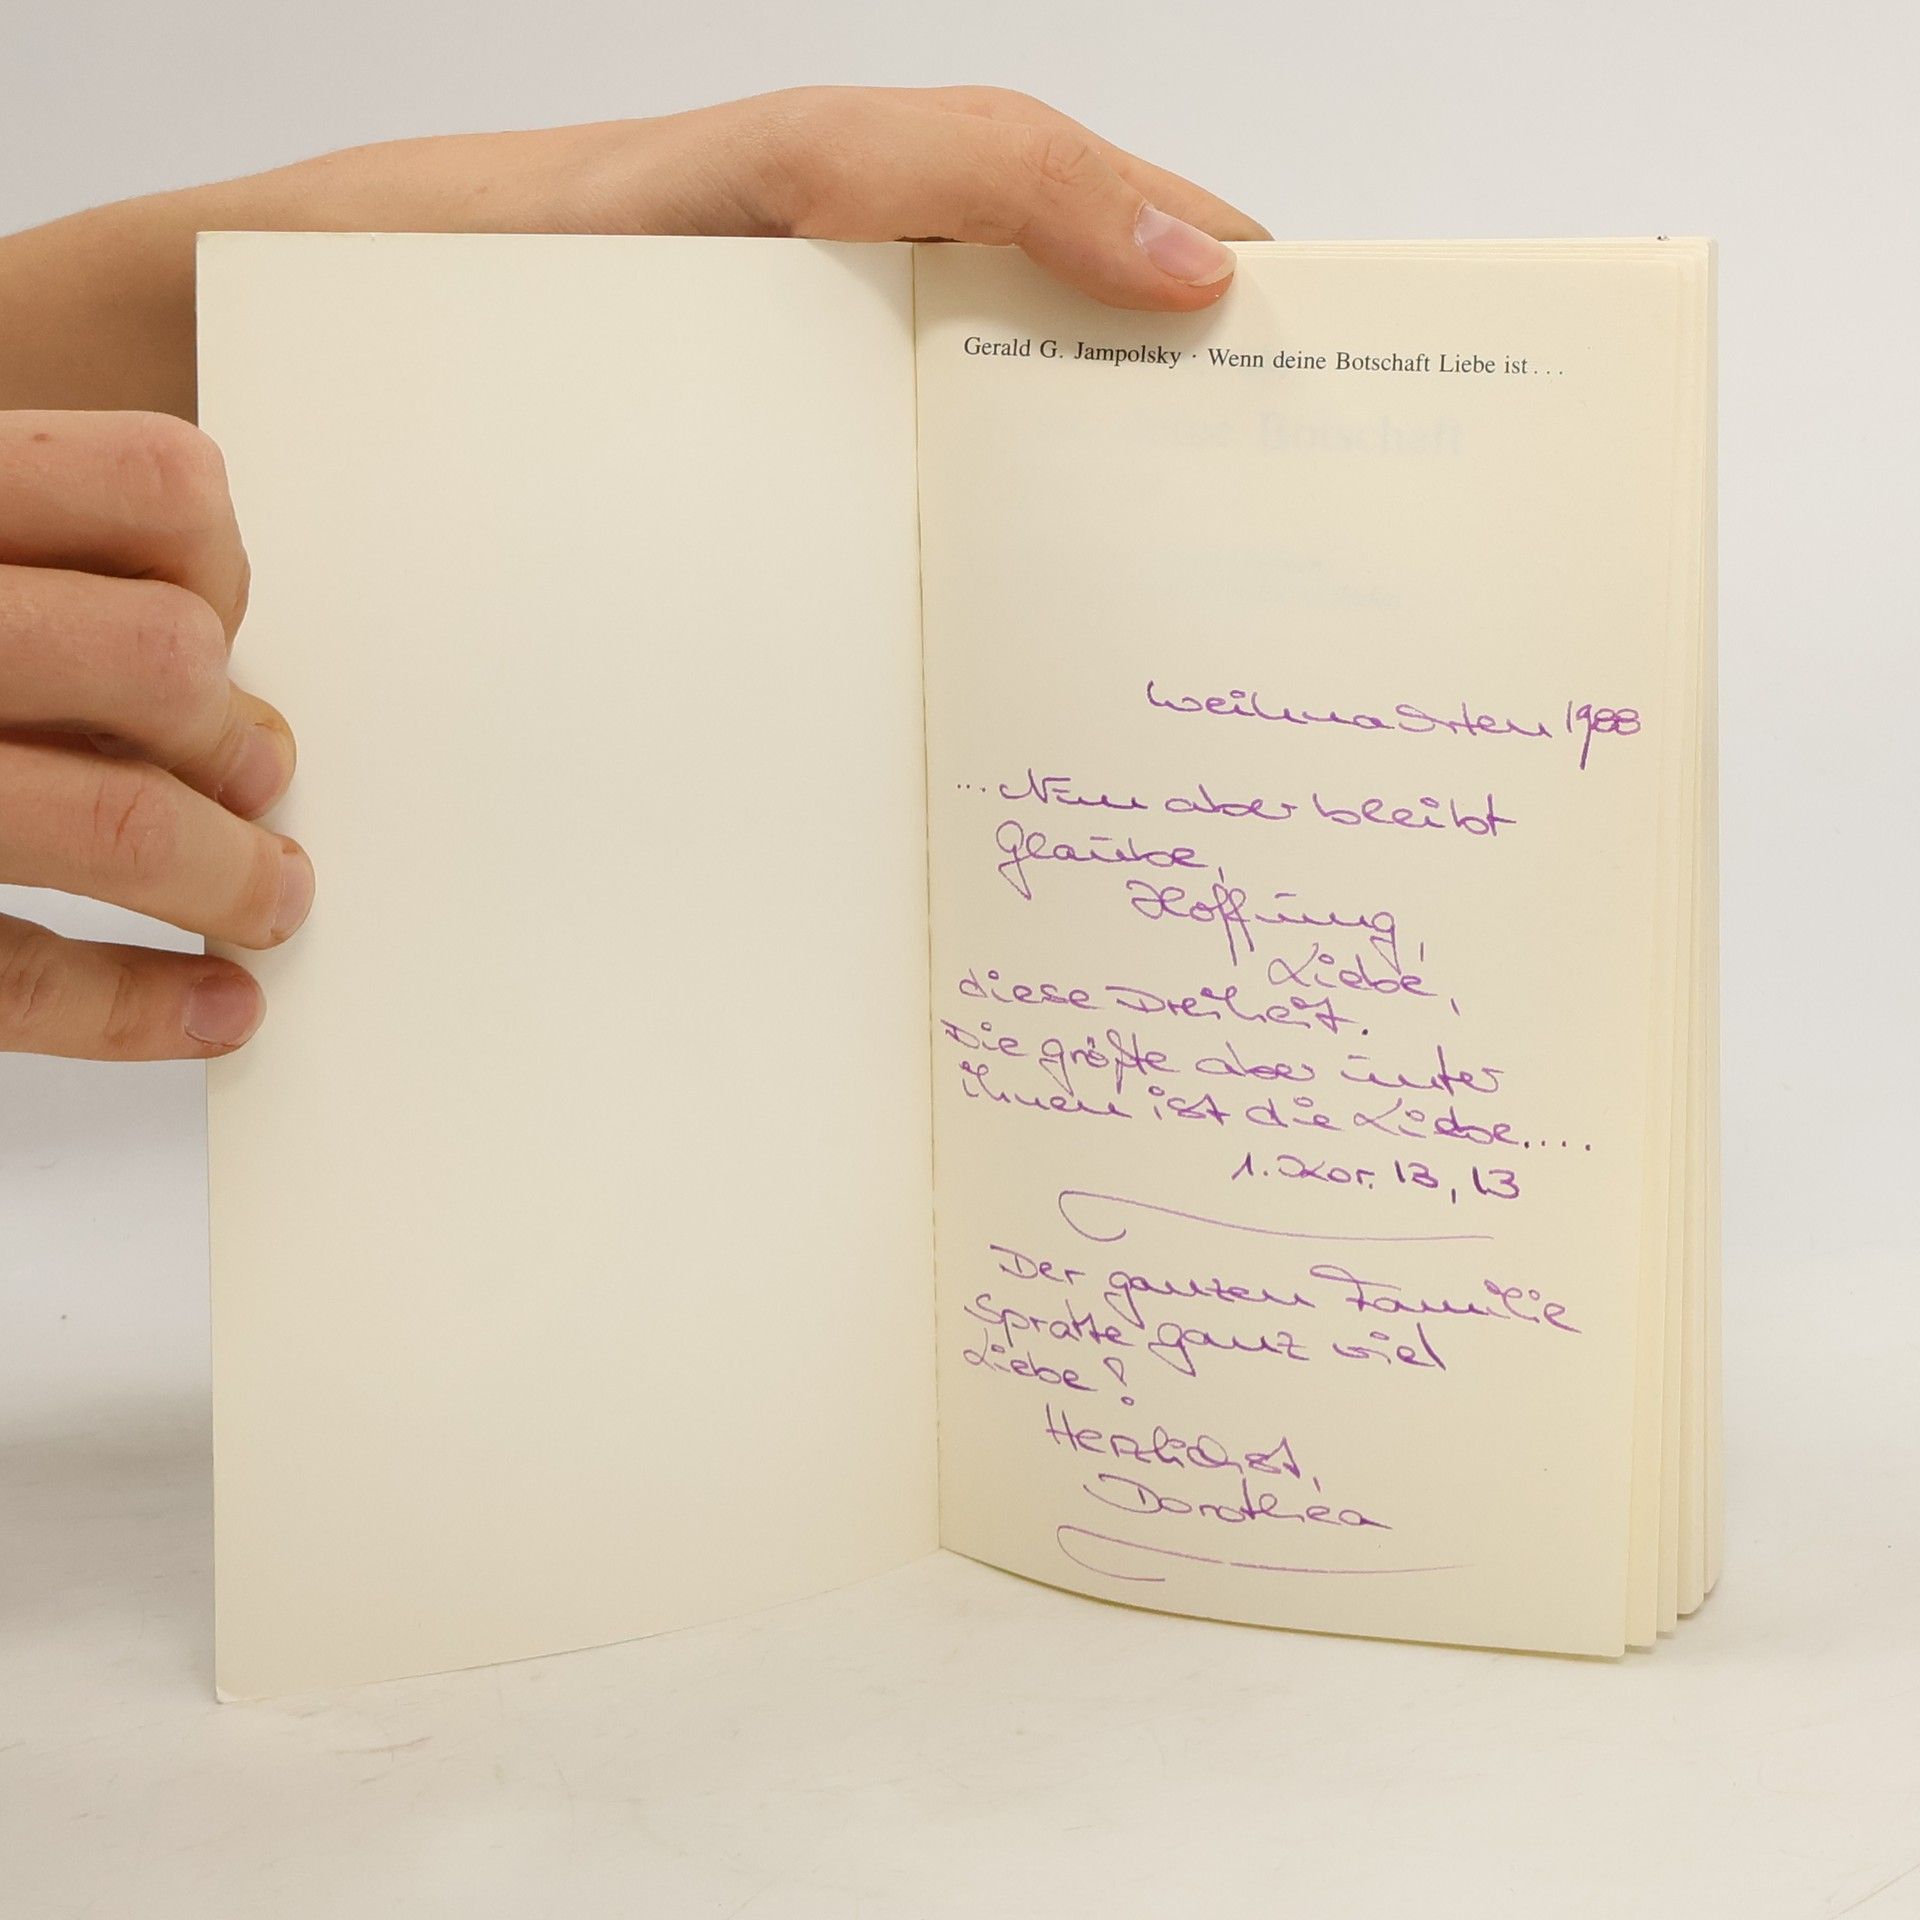 Gerald G. Jampolsky · Wenn deine Botschaft Liebe ist...
Botschaft
Weihnachten 1988
... Nun aber bleibt
Glaube,
Hoffnung,
Liebe,
diese Dreiheit.
Die größte aber unter
ihnen ist die Liebe....
1. Kor. 13, 13
Der ganzen Familie
Spratte ganz viel
Liebe!
Herzlichst,
Dorothea